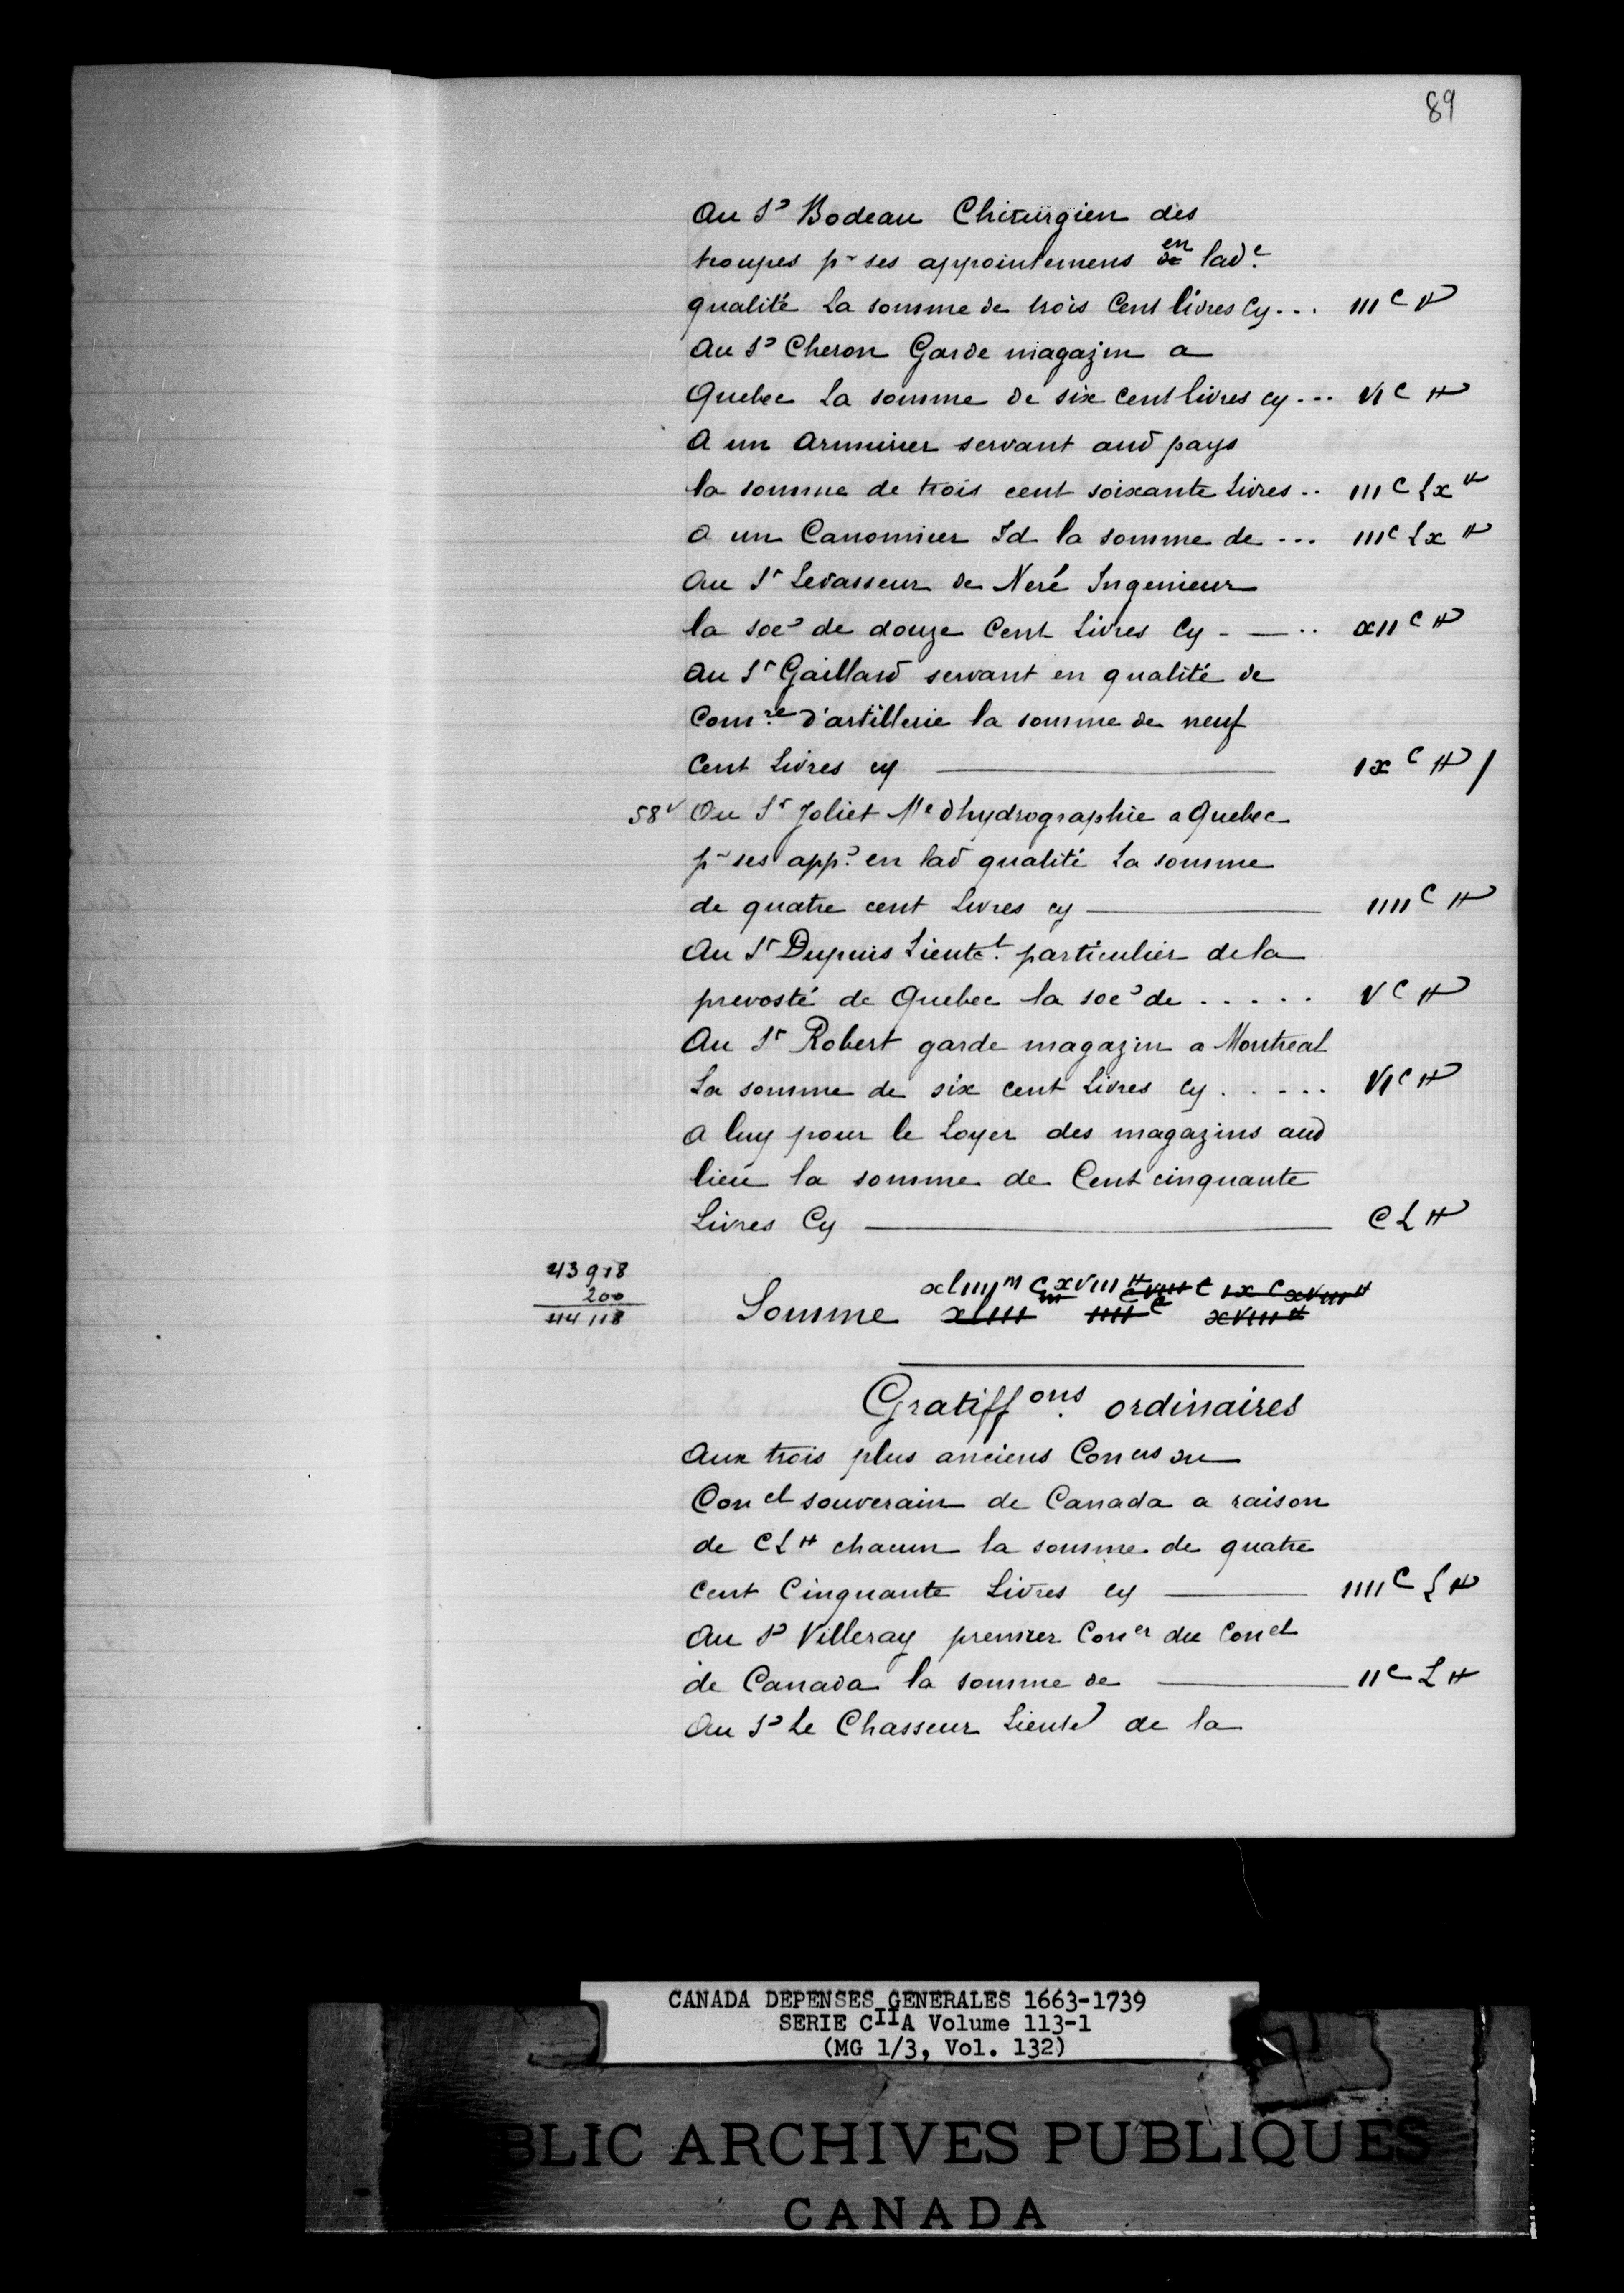 89
Au Sr Bodeau Chirurgien des
troupes pr ses appointemens en lade
qualité La somme de trois Cent livres Cy... IIIC ₶
Au Sr Cheron Garde magazin a
Quebec La somme de six cent livres cy... VIC ₶
A un Armurier servant aud pays
la somme de trois cent soixante Livres.. IIIC Lx ₶
A un Canonnier Id la somme de... IIIC Lx ₶
Au Sr Levasseur de Neré Ingenieur
la soe de douze Cent Livres Cy - — .. XIIC ₶
Au Sr Gaillard servant en qualité de
Comre d'artillerie la somme de neuf
Cent Livres cy — IxC ₶ /
58v Au Sr Joliet Me dhydrographie a Quebec
pr ses app. en lad qualité La somme
de quatre cent Livres cy — IIIIC ₶
Au Sr Dupuis Lieutet. particulier de la
prevosté de Quebec la soe de ..... VC ₶
Au Sr Robert garde magazin a Montreal
La somme de six cent Livres Cy..... VIC ₶
A luy pour le Loyer des magazins aud
lieu la somme de Cent cinquante
Livres Cy — CL ₶
43918
200
44118
Somme xliiijM C xviii ₶
xliiii iiiiC xviii ₶
Gratiffons. ordinaires
Aux trois plus anciens Coners du
Conel souverain de Canada a raison
de CL ₶ chacun la somme de quatre
cent Cinquante Livres cy — IIIIC L ₶
Au Sr Villeray premier Coner du Conel
de Canada la somme de — IIC L ₶
Au Sr Le Chasseur Lieute de la
CANADA DEPENSES GENERALES 1663-1739
SERIE CIIA Volume 113-1
(MG 1/3, Vol. 132)
BLIC ARCHIVES PUBLIQUES
CANADA